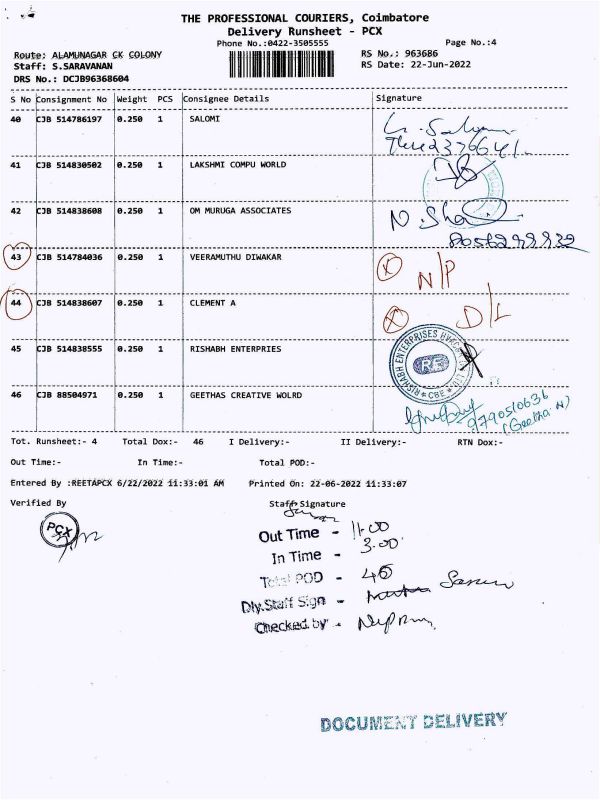 THE PROFESSIONAL COURIERS, Coimbatore
Delivery Runsheet - PCX
Phone No.:0422-3505555 Page No.:4
Route: ALAMUNAGAR CK COLONY RS No.: 963686
Staff: S.SARAVANAN RS Date: 22-Jun-2022
DRS No.: DCJB96368604
S No Consignment No Weight PCS Consignee Details Signature
40 CJB 514786197 0.250 1 SALOMI
41 CJB 514830502 0.250 1 LAKSHMI COMPU WORLD
42 CJB 514838608 0.250 1 OM MURUGA ASSOCIATES
43 CJB 514784036 0.250 1 VEERAMUTHU DIWAKAR N/P
44 CJB 514838607 0.250 1 CLEMENT A D/L
45 CJB 514838555 0.250 1 RISHABH ENTERPRIES
RISHABH ENTERPRISES CBE
RE
46 CJB 88504971 0.250 1 GEETHAS CREATIVE WOLRD
9790510636
(Geetha N)
Tot. Runsheet:- 4 Total Dox:- 46 I Delivery:- II Delivery:- RTN Dox:-
Out Time:- In Time:- Total POD:-
Entered By :REETAPCX 6/22/2022 11:33:01 AM Printed On: 22-06-2022 11:33:07
Verified By Staff Signature
PCX
Out Time - 11.00
In Time - 3.00
Total POD - 46
Dly.Staff Sign -
Checked by -
DOCUMENT DELIVERY